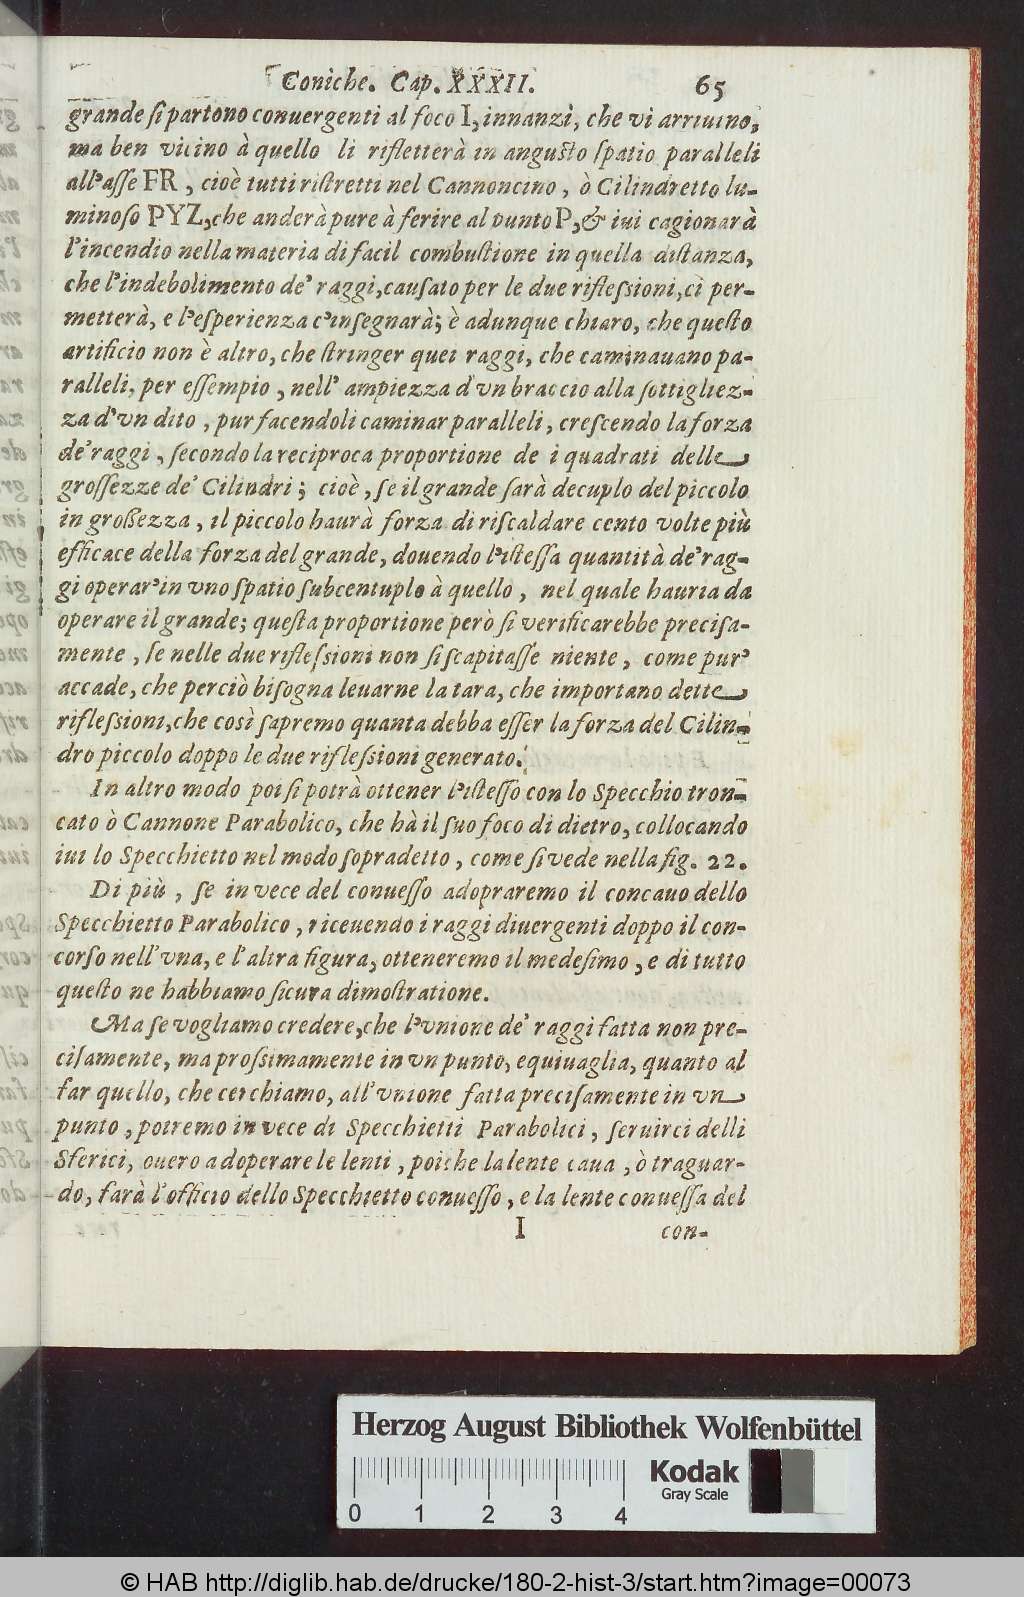 Coniche. Cap. XXXII. 65
grande si partono conuergenti al foco I, innanzi, che vi arriuino,
ma ben vicino à quello li rifletterà in angusto spatio paralleli
all'asse FR, cioè tutti ristretti nel Cannoncino, ò Cilindretto lu-
minoso PYZ, che anderà pure à ferire al punto P, & iui cagionarà
l'incendio nella materia di facil combustione in quella distanza,
che l'indebolimento de' raggi, causato per le due riflessioni, ci per-
metterà, e l'esperienza c'insegnarà; è adunque chiaro, che questo
artificio non è altro, che stringer quei raggi, che caminauano pa-
ralleli, per essempio, nell' ampiezza d'vn braccio alla sottigliez-
za d'vn dito, pur facendoli caminar paralleli, crescendo la forza
de' raggi, secondo la reciproca proportione de i quadrati delle
grossezze de' Cilindri; cioè, se il grande sarà decuplo del piccolo
in großezza, il piccolo haurà forza di riscaldare cento volte più
efficace della forza del grande, douendo l'istessa quantità de' rag-
gi operar' in vno spatio subcentuplo à quello, nel quale hauria da
operare il grande; questa proportione però si verificarebbe precisa-
mente, se nelle due riflessioni non si scapitasse niente, come pur'
accade, che perciò bisogna leuarne la tara, che importano dette
riflessioni, che così sapremo quanta debba esser la forza del Cilin-
dro piccolo doppo le due riflessioni generato.
In altro modo poi si potrà ottener l'istesso con lo Specchio tron-
cato ò Cannone Parabolico, che hà il suo foco di dietro, collocando
iui lo Specchietto nel modo sopradetto, come si vede nella fig. 22.
Di più, se in vece del conuesso adopraremo il concauo dello
Specchietto Parabolico, riceuendo i raggi diuergenti doppo il con-
corso nell'vna, e l'altra figura, otteneremo il medesimo, e di tutto
questo ne habbiamo sicura dimostratione.
Ma se vogliamo credere, che l'vnione de' raggi fatta non pre-
cisamente, ma prossimamente in vn punto, equiuaglia, quanto al
far quello, che cerchiamo, all'vnione fatta precisamente in vn
punto, potremo in vece di Specchietti Parabolici, seruirci delli
Sferici, ouero adoperare le lenti, poiche la lente caua, ò traguar-
do, farà l'officio dello Specchietto conuesso, e la lente conuessa del
I con-
Herzog August Bibliothek Wolfenbüttel
Kodak
Gray Scale
0 1 2 3 4
© HAB http://diglib.hab.de/drucke/180-2-hist-3/start.htm?image=00073